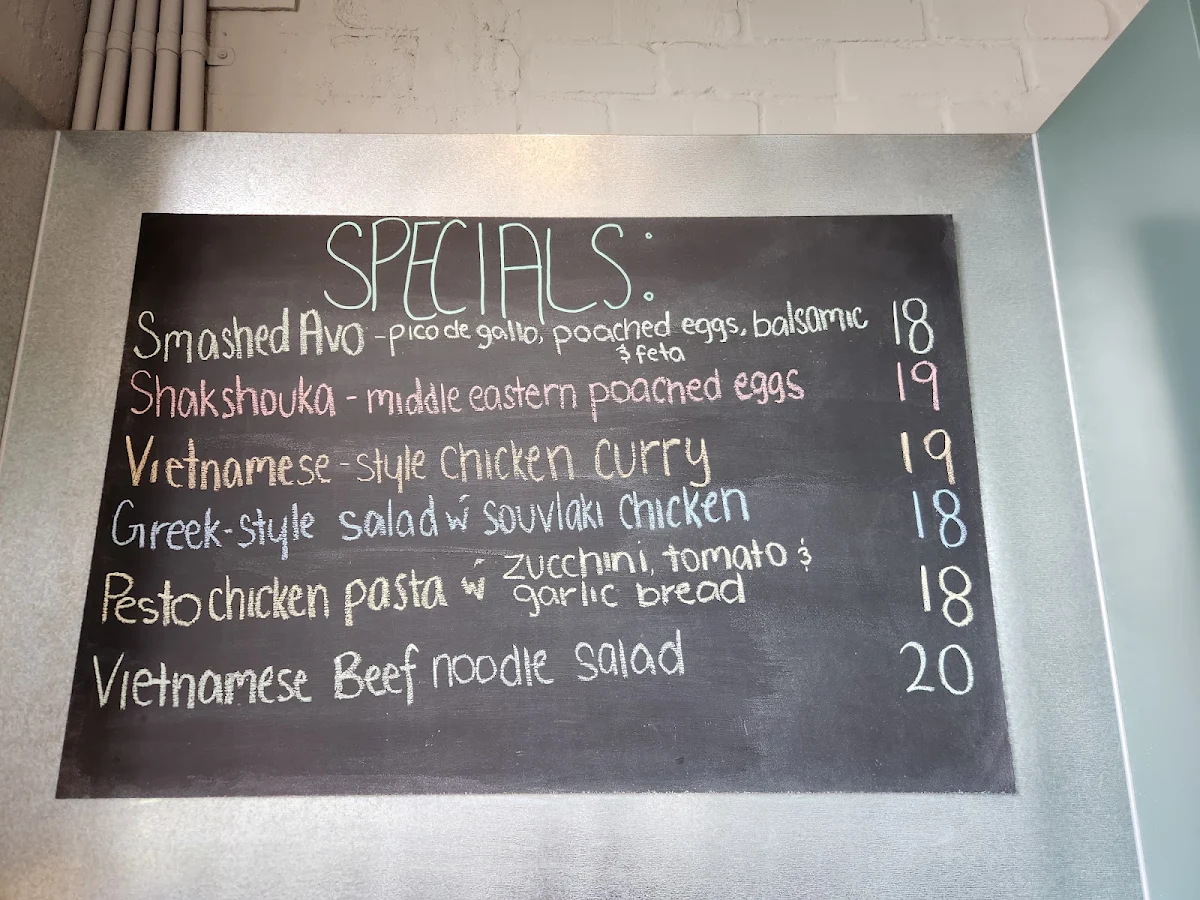 SPECIALS:
Smashed Avo - pico de gallo, poached eggs, balsamic 18
& feta
Shakshouka - middle eastern poached eggs 19
Vietnamese-style chicken curry 19
Greek-style salad w/ souvlaki chicken 18
Pesto chicken pasta w/ zucchini, tomato & 18
garlic bread
Vietnamese Beef noodle salad 20